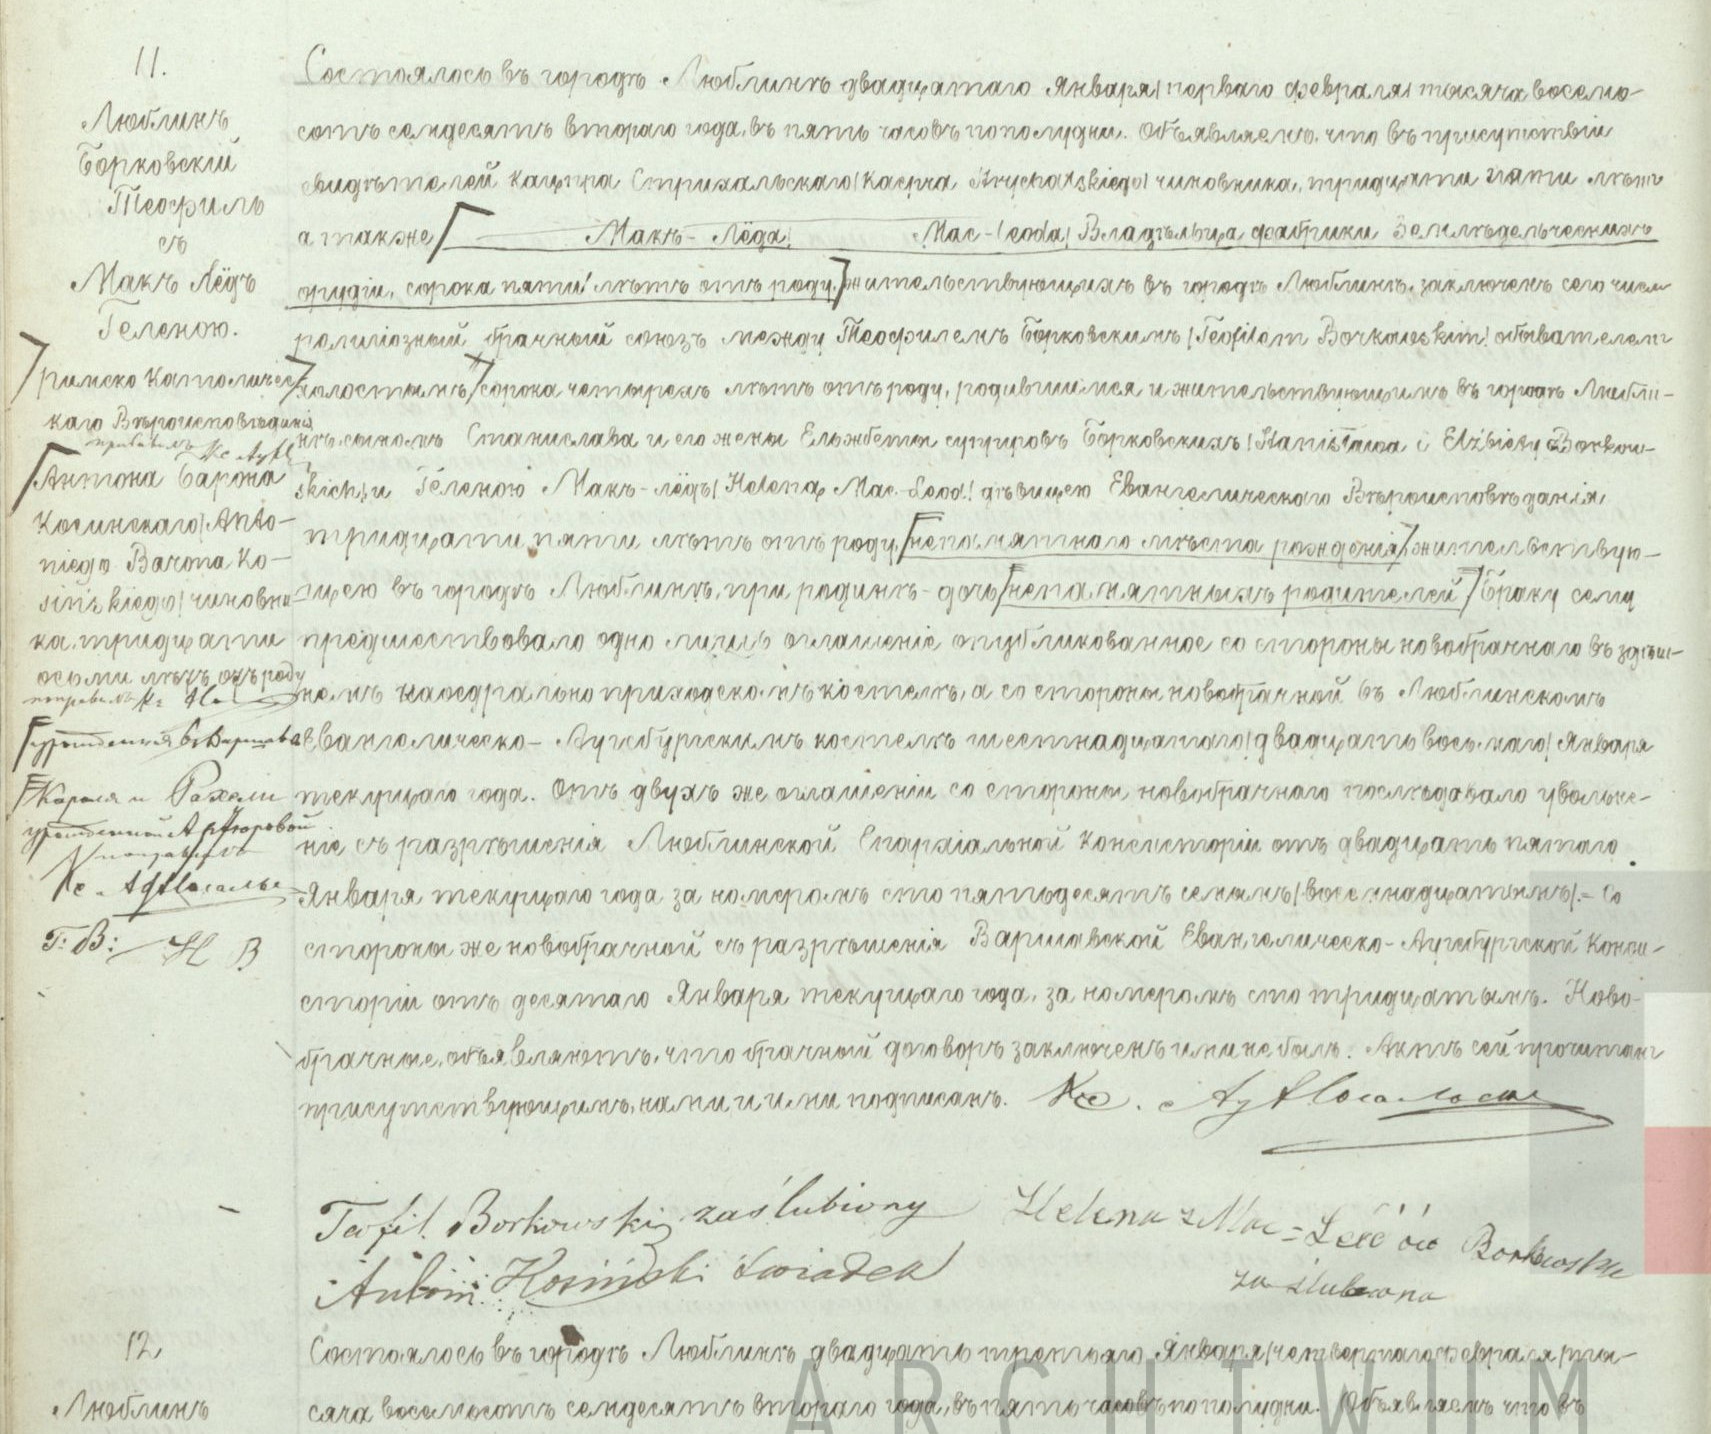 11.
Люблинъ
Борковскій
Теофиль
съ
Макъ Лёдъ
Геленою.
римско Католичес-
каго Вѣроисповѣданія
Антона Барона
Косинскаго/Anto-
niego Barona Ko-
sińskiego/чиновни-
ка, тридцати
осьми лѣтъ отъ роду
урожденная въ Варшавѣ
Кароля и Рахели
урожденной Артуровой
Кс.
Г: В: Н В
Состоялось въ городѣ Люблинѣ двадцатаго Января/перваго февраля/тысяча восемь-
сотъ семдесятъ втораго года, въ пять часовъ пополудни. Объявляемъ, что въ присутствіи
свидѣтелей Каспра Стрихальскаго/Kacpra Strychalskiego/чиновника, тридцати пяти лѣтъ
а также Макъ-Лёда/ Mac-Leoda/Владѣльца фабрики Земледѣльческихъ
орудіи, сорока пяти лѣтъ отъ роду, жительствующихъ въ городѣ Люблинѣ, заключенъ сего числа
религіозный брачный союзъ между Теофилемъ Борковскимъ/Teofilem Borkowskim/обывателемъ
холостымъ сорока четырехъ лѣтъ отъ роду, родившимся и жительствующимъ въ городѣ Любли-
нѣ, сыномъ Станислава и его жены Ельжбеты супруговъ Борковскихъ/Stanisława i Elżbiety Borkow-
skich/и Геленою Макъ-лёдъ/Heleną Mac-Leod/дѣвицею Евангелическаго Вѣроисповѣданія,
тридцати пяти лѣтъ отъ роду, непамятнаго мѣста рожденія, жительствую-
щею въ городѣ Люблинѣ, при родинѣ - дочь непамятныхъ родителей Браку сему
предшествовало одно лишь оглашеніе опубликованное со стороны новобрачнаго въ здѣш-
немъ каѳедрально приходскомъ костелѣ, а со стороны новобрачной въ Люблинскомъ
Евангелическо-Аугсбургскимъ костелѣ шестнадцатаго/двадцать восьмаго/Января
текущаго года. Отъ двухъ же оглашеніи со стороны новобрачнаго послѣдовало увольне-
ніе съ разрѣшенія Люблинской Епархіальной Консисторіи отъ двадцать пятаго
Января текущаго года за номеромъ сто пятьдесятъ семымъ/восемнадцатымъ/.- Со
стороны же новобрачной съ разрѣшенія Варшавской Евангелическо-Аугсбургской Конси-
сторіи отъ десятаго Января текущаго года, за номеромъ сто тридцатымъ. Ново-
брачные, объявляютъ, что брачный договоръ заключенъ ими не былъ. Актъ сей прочитанъ
присутствующимъ, нами и ими подписанъ. Кс.
Teofil Borkowski zaślubiony Helena z Mac= Borkowska
Antoni Kosiński świadek zaślubiona
12.
Люблинъ
Состоялось въ городѣ Люблинѣ двадцать третьяго Января/четвертаго февраля/ты-
сяча восемьсотъ семдесятъ втораго года, въ пять часовъ пополудни. Объявляемъ что въ
ARCHIWUM